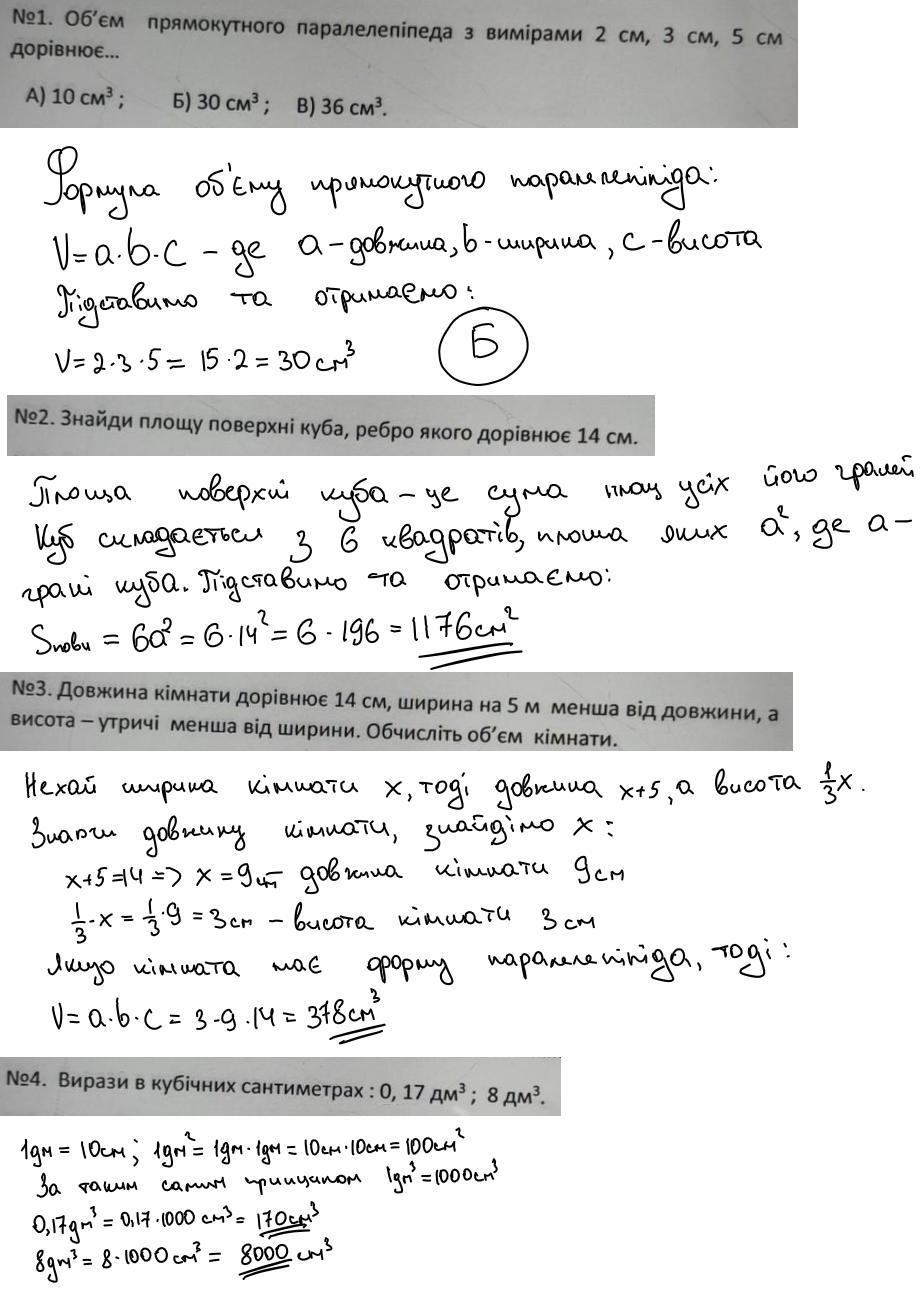 №1. Об'єм прямокутного паралелепіпеда з вимірами 2 см, 3 см, 5 см
дорівнює...
А) 10 см³ ; Б) 30 см³ ; В) 36 см³.
Формула об'єму прямокутного паралелепіпіда:
V=a·b·c – де a – довжина, b - ширина, c – висота
Підставимо та отримаємо:
V=2·3·5= 15·2=30см³
Б
№2. Знайди площу поверхні куба, ребро якого дорівнює 14 см.
Площа поверхні куба – це сума площ усіх його граней
Куб складається з 6 квадратів, площа яких a², де a –
грані куба. Підставимо та отримаємо:
Sповн = 6a² = 6·14² = 6·196 = 1176см²
№3. Довжина кімнати дорівнює 14 см, ширина на 5 м менша від довжини, а
висота – утричі менша від ширини. Обчисліть об'єм кімнати.
Нехай ширина кімнати x, тоді довжина x+5, а висота 1/3x.
Знаючи довжину кімнати, знайдімо x:
x+5=14 => x=9см довжина кімнати 9см
1/3·x = 1/3·9 = 3см – висота кімнати 3см
Якщо кімната має форму паралелепіпіда, тоді:
V=a·b·c = 3·9·14 = 378см³
№4. Вирази в кубічних сантиметрах : 0, 17 дм³ ; 8 дм³.
1дм = 10см; 1дм² = 1дм·1дм = 10см·10см = 100см²
За таким самим принципом 1дм³=1000см³
0,17дм³ = 0,17·1000 см³ = 170см³
8дм³ = 8·1000см³ = 8000 см³